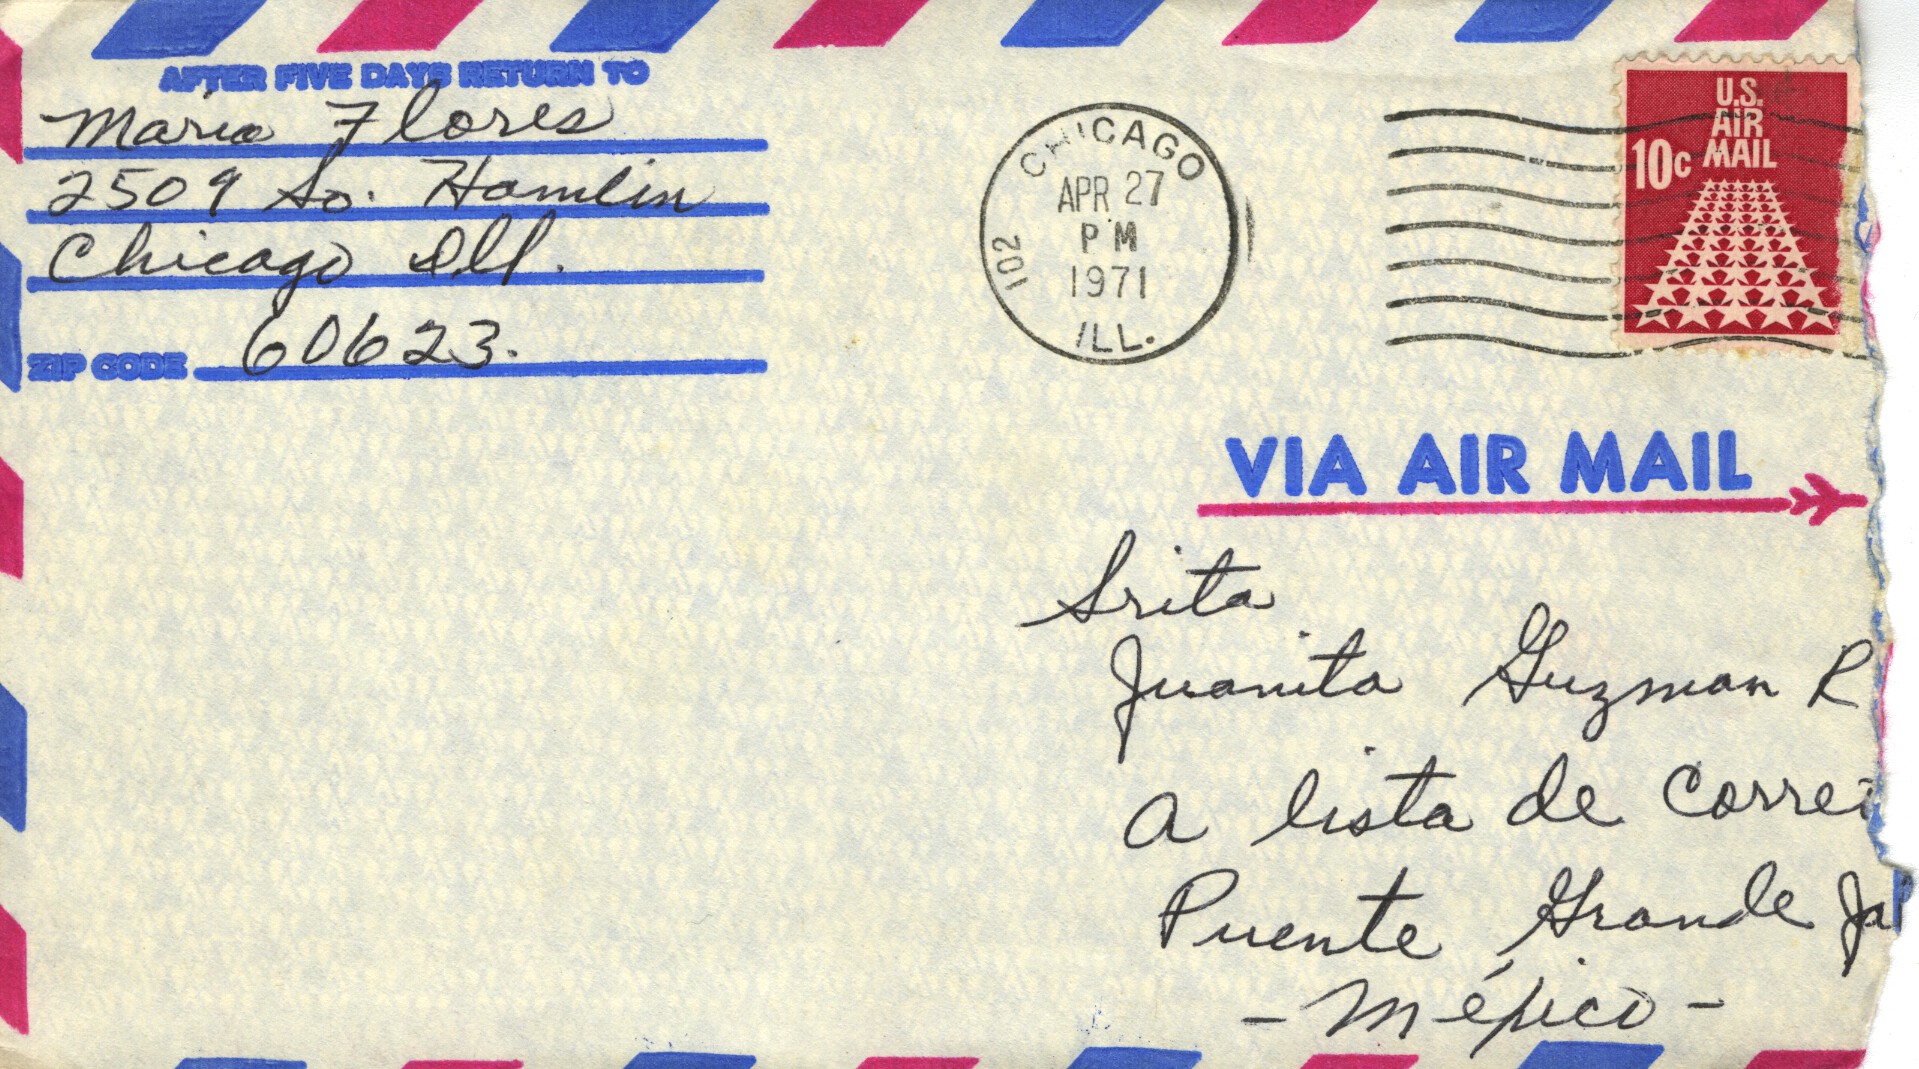 AFTER FIVE DAYS RETURN TO
Maria Flores
2509 So. Hamlin
Chicago Ill.
ZIP CODE 60623.
CHICAGO
APR 27
PM
1971
ILL.
102
U.S.
AIR
MAIL
10c
VIA AIR MAIL
Srita
Juanita Guzman R
A lista de Correo
Puente Grande Jal
- México -